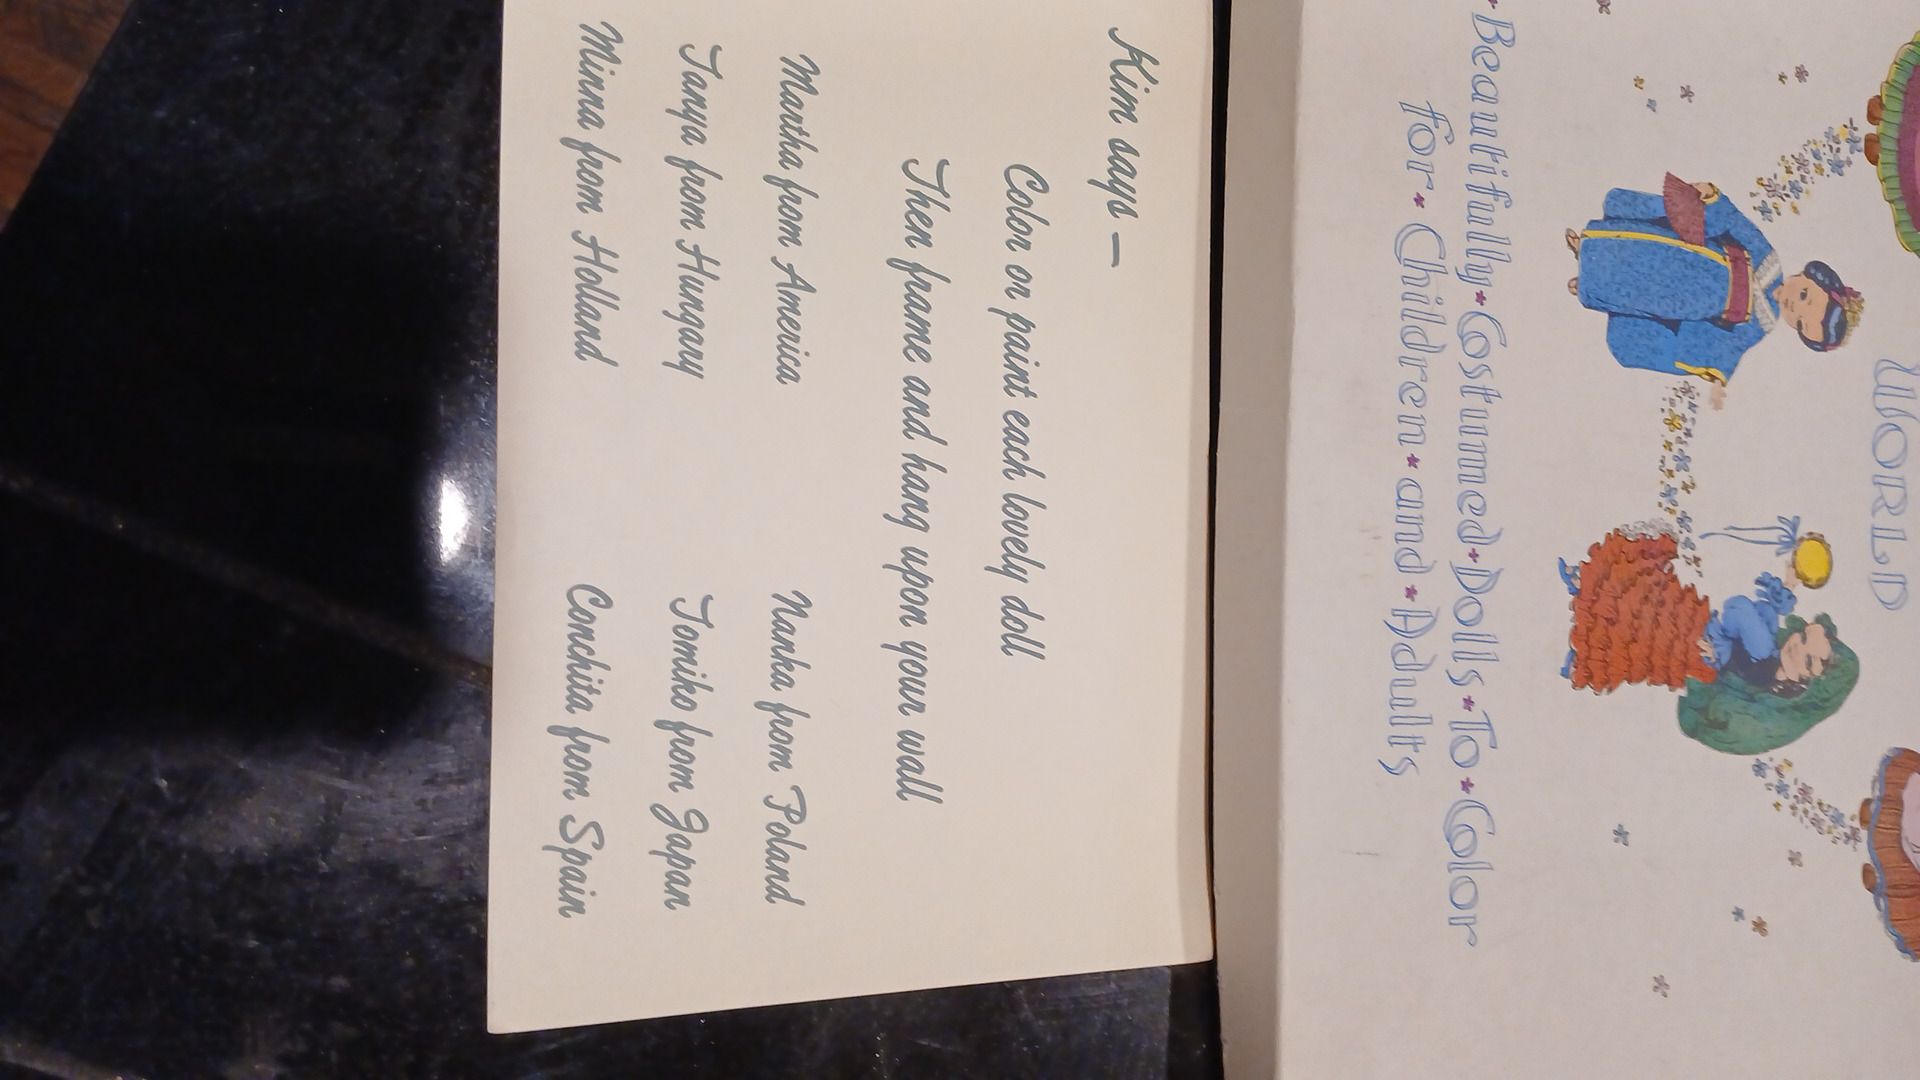 WORLD
Beautifully * Costumed * Dolls * To * Color
for * Children * and * Adults
Kim says —
Color or paint each lovely doll
Then frame and hang upon your wall
Martha from America Nanka from Poland
Tanya from Hungary Tomiko from Japan
Minna from Holland Conchita from Spain